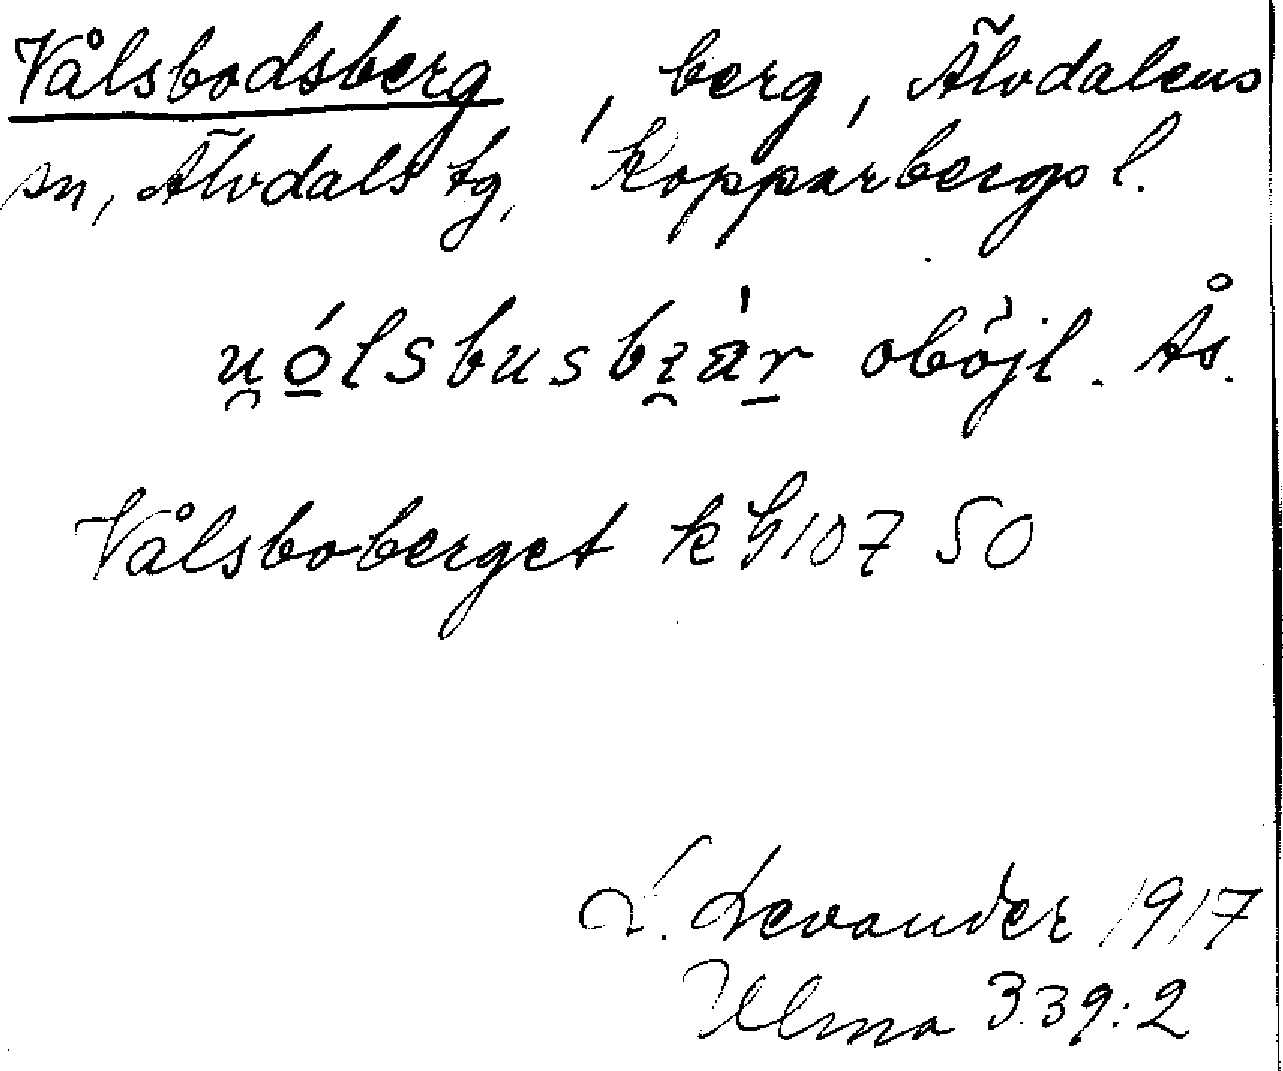 Vålsbodsberg, berg, Älvdalens
sn, Älvdals tg, Kopparbergs l.
u̯ó̠lsbusbɪ̯àr̠ oböjl. Ås.
Vålsboberget k G 107 50
L. Levander 1917
Ulma 339:2